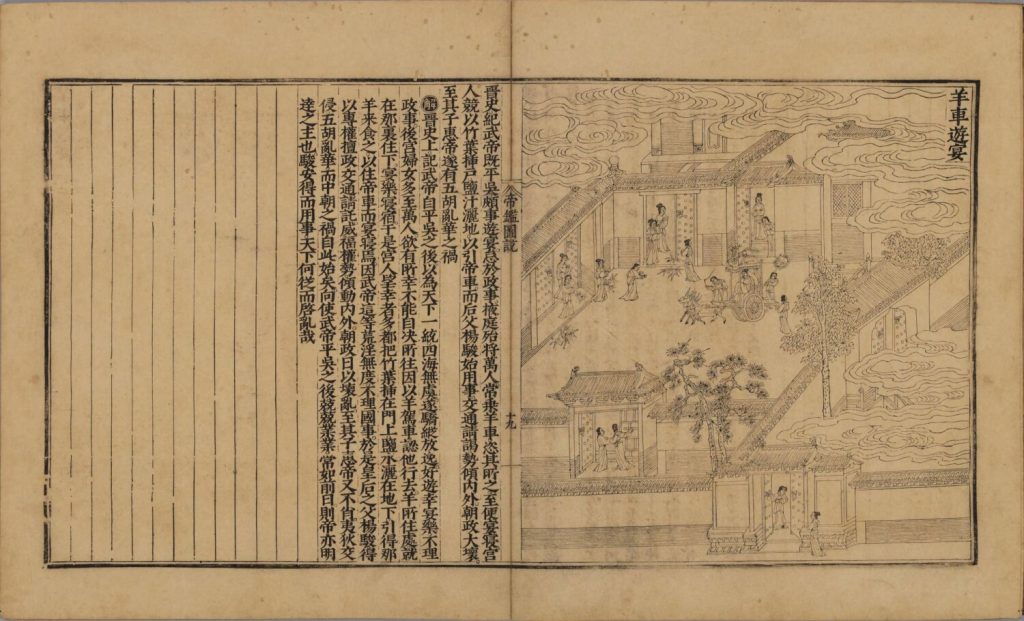 羊車遊宴
帝鑑圖說
十九
晋史紀武帝既平吳頗事遊宴怠於政事掖庭殆將萬人常乗羊車恣其所之至便宴寢宮
人競以竹葉挿戶鹽汁灑地以引帝車而后父楊駿始用事交通請謁勢傾内外朝政大壞
至其子惠帝遂有五胡亂華之禍
解晋史上記武帝自平吳之後以為天下一統四海無虞遂驕縱放逸好遊幸宴樂不理
政事後宮婦女多至萬人欲有所幸不能自决所往因以羊駕車認他行去羊所住處就
在那裏住下宴樂寢宿于是宮人望幸者多都把竹葉挿在門上鹽水灑在地下引得那
羊来食之以住帝車而宴寢焉因武帝這等荒淫無度不理國事於是皇后之父楊駿得
以專權擅政交通請託威福權勢傾動内外朝政日以壞亂至其子惠帝又不肖夷狄交
侵五胡亂華而中朝之禍自此始矣向使武帝平吳之後兢兢業業常如前日則帝亦明
達之主也駿安得而用事天下何從而啓亂哉